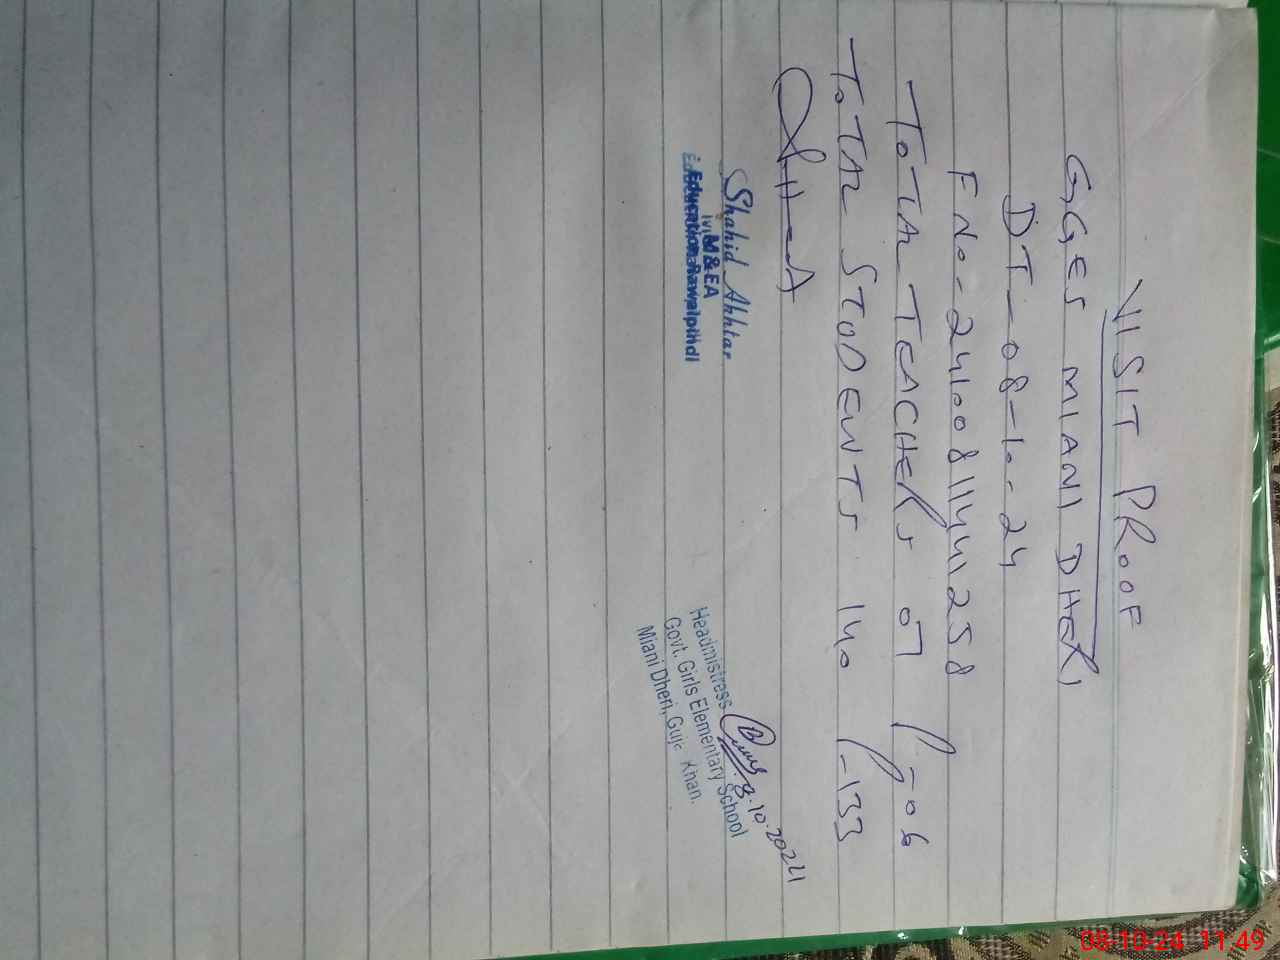 VISIT PROOF
GGES MIANI DHERI
DT-08-10-24
F No-24100811441258
TOTAL TEACHERS 07 P-06
TOTAL STUDENTS 140 P-133
Shahid Akhtar
M & EA
Education Rawalpindi
8.10.2024
Headmistress
Govt. Girls Elementary School
Miani Dheri, Gujr Khan.
08-10-24 11:49